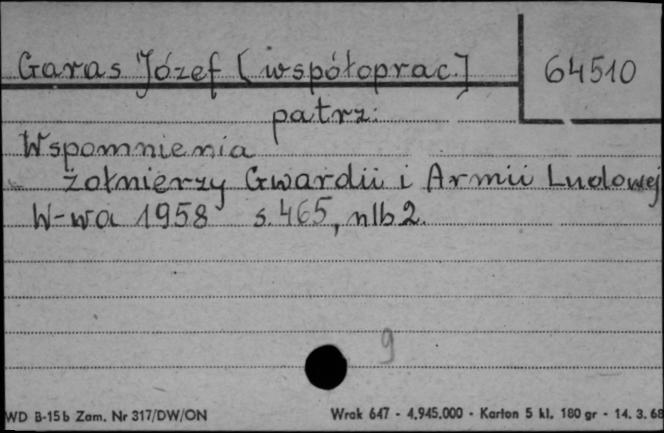 Garas Józef [współoprac.]
64510
patrz:
Wspomnienia
żołnierzy Gwardii i Armii Ludowej
W-wa 1958 s. 465, nlb 2.
9
WD B-15b Zam. Nr 317/DW/ON
Wrak 647 - 4.945.000 - Karton 5 kl. 180 gr - 14. 3. 68